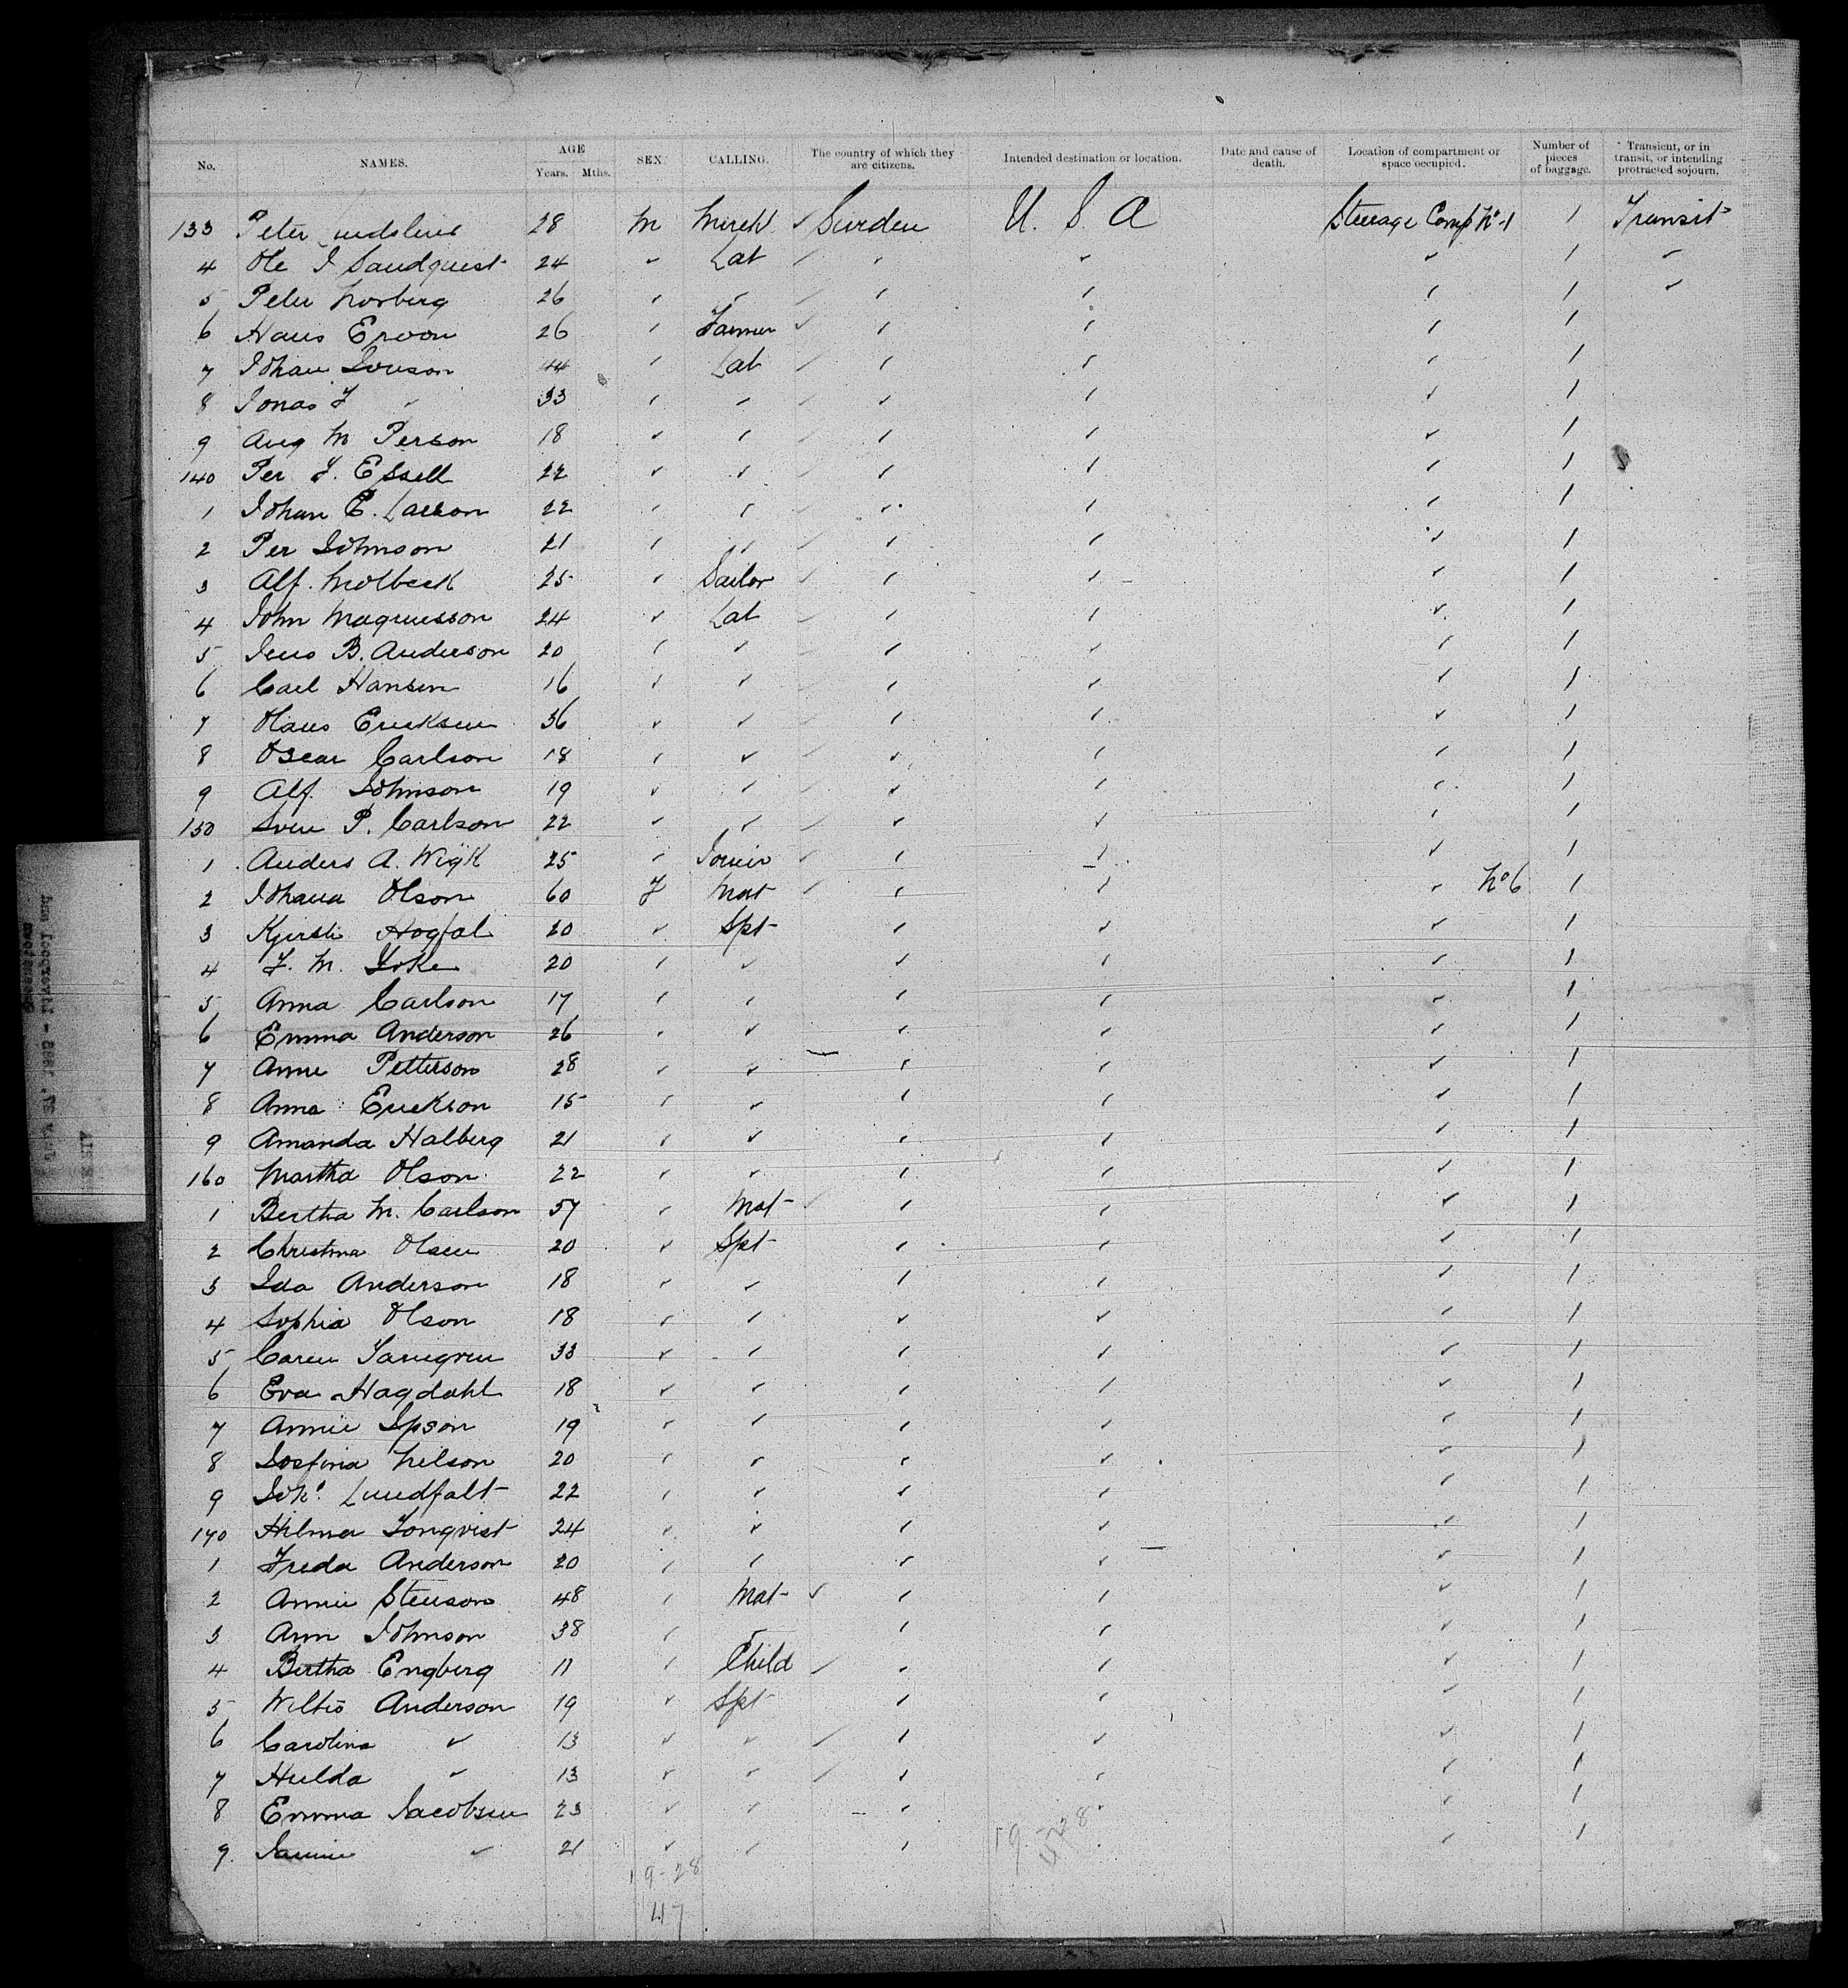 No. NAMES. AGE Years. Mths. SEX. CALLING. The country of which they are citizens. Intended destination or location. Date and cause of death. Location of compartment or space occupied. Number of pieces of baggage. Transient, or in transit, or intending protracted sojourn.
133 Peter 28 M Merch ✓ Sweden U. S. A Steerage Comp No 1 1 Transit
4 Ole J Sandquest 24 " Lab " " " 1 "
5 Peter Norberg 26 " " " " " 1 "
6 Hans 26 " Farmer " " " 1
7 Johan Jonson 44 " Lab " " " 1
8 Jonas F " 33 " " " " " 1
9 Aug M Person 18 " " " " " 1
140 Per J. Essell 22 " " " " " 1
1 Johan E. Larson 22 " " " " " 1
2 Per Johnson 21 " " " " " 1
3 Alf. Molbeck 25 " Sailor " " " 1
4 John Magnusson 24 " Lab " " " 1
5 Jens B. Anderson 20 " " " " " 1
6 Carl Hansen 16 " " " " " 1
7 Olaus Ericksen 36 " " " " " 1
8 Oscar Carlson 18 " " " " " 1
9 Alf. Johnson 19 " " " " " 1
150 Sven P. Carlson 22 " " " " " 1
1 Anders A. Wigk 25 " Joiner " " " 1
2 Johana Olson 60 F Mat " " " No 6 1
3 Kjersti Hogfal 20 " Spt " " " 1
4 F. M. Joke 20 " " " " " 1
5 Anna Carlson 17 " " " " " 1
6 Emma Anderson 26 " " " " " 1
7 Anne Petterson 28 " " " " " 1
8 Anna Erickson 15 " " " " " 1
9 Amanda Halberg 21 " " " " " 1
160 Martha Olson 22 " " " " " 1
1 Bertha M. Carlson 57 " Mat " " " 1
2 Christina Olsen 20 " Spt " " " 1
3 Ida Anderson 18 " " " " " 1
4 Sophia Olson 18 " " " " " 1
5 Caren 33 " " " " " 1
6 Eva Hagdahl 18 " " " " " 1
7 Annie Ipson 19 " " " " " 1
8 Josfina Nelson 20 " " " " " 1
9 Joha Lundfalt 22 " " " " " 1
170 Hilma Tonqvist 24 " " " " " 1
1 Freda Anderson 20 " " " " " 1
2 Annie Stenson 48 " Mat ✓ " " " 1
3 Ann Johnson 38 " " " " " 1
4 Bertha Engberg 11 " Child " " " 1
5 Anderson 19 " Spt " " " 1
6 Carolina " 13 " " " " " 1
7 Hulda " 13 " " " " " 1
8 Emma Jacobsen 23 " " " " " 1
9 " 21 " " " " " 1
19-28
47